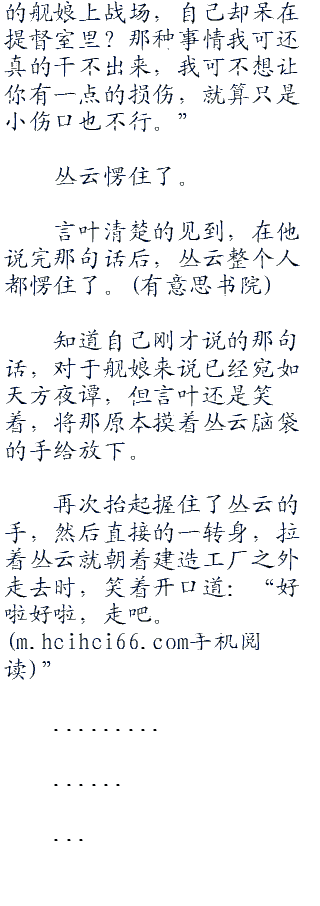 的舰娘上战场，自己却呆在
提督室里？那种事情我可还
真的干不出来，我可不想让
你有一点的损伤，就算只是
小伤口也不行。”
丛云愣住了。
言叶清楚的见到，在他
说完那句话后，丛云整个人
都愣住了。(有意思书院)
知道自己刚才说的那句
话，对于舰娘来说已经宛如
天方夜谭，但言叶还是笑
着，将那原本摸着丛云脑袋
的手给放下。
再次抬起握住了丛云的
手，然后直接的一转身，拉
着丛云就朝着建造工厂之外
走去时，笑着开口道：“好
啦好啦，走吧。
(m.hcihci66.com手机阅
读)”
.........
......
...